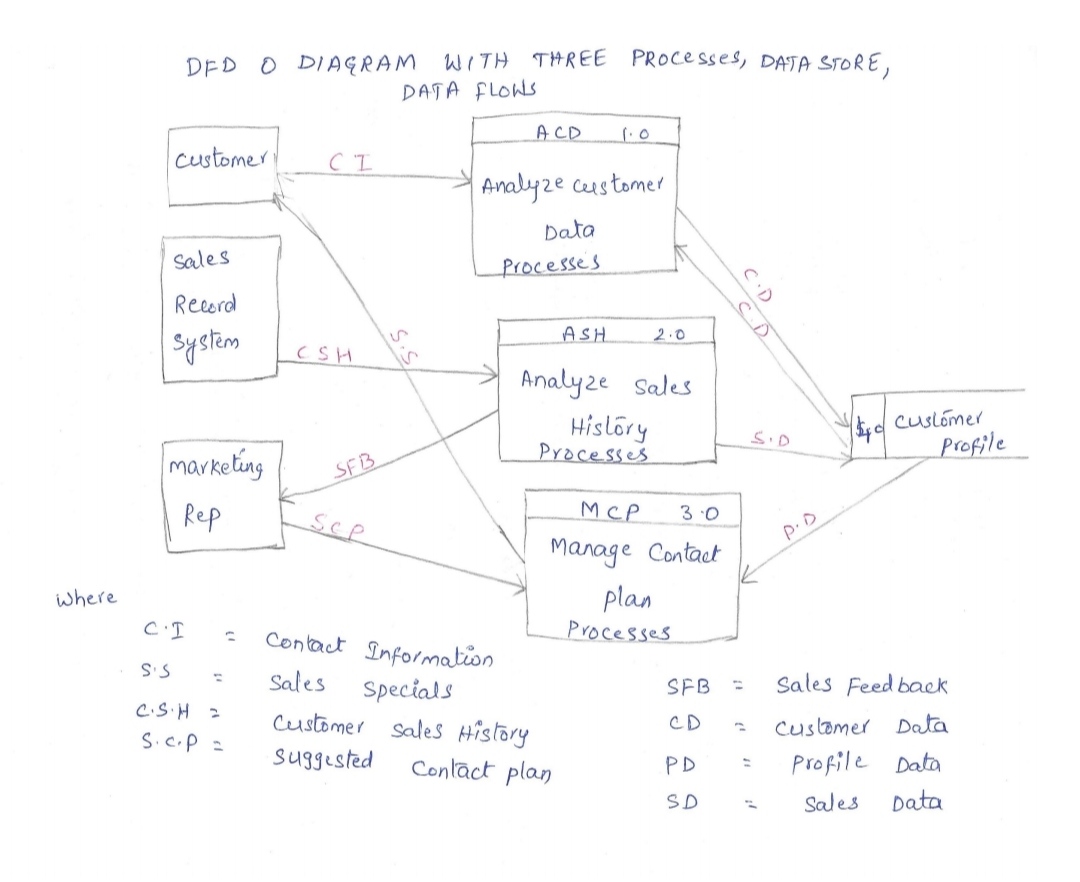 DFD 0 DIAGRAM WITH THREE PROCESSES, DATA STORE,
DATA FLOWS
Customer
CI
ACD 1.0
Analyze customer
Data
Processes
Sales
Record
System
CSH
S.S
C.D
C.D
ASH 2.0
Analyze Sales
History
Processes
S.D
Customer
Profile
Marketing
Rep
SFB
SCP
MCP 3.0
Manage Contact
plan
Processes
P.D
where
C.I = Contact Information
S.S = Sales Specials
C.S.H = Customer Sales History
S.C.P = Suggested Contact plan
SFB = Sales Feedback
CD = Customer Data
PD = Profile Data
SD = Sales Data